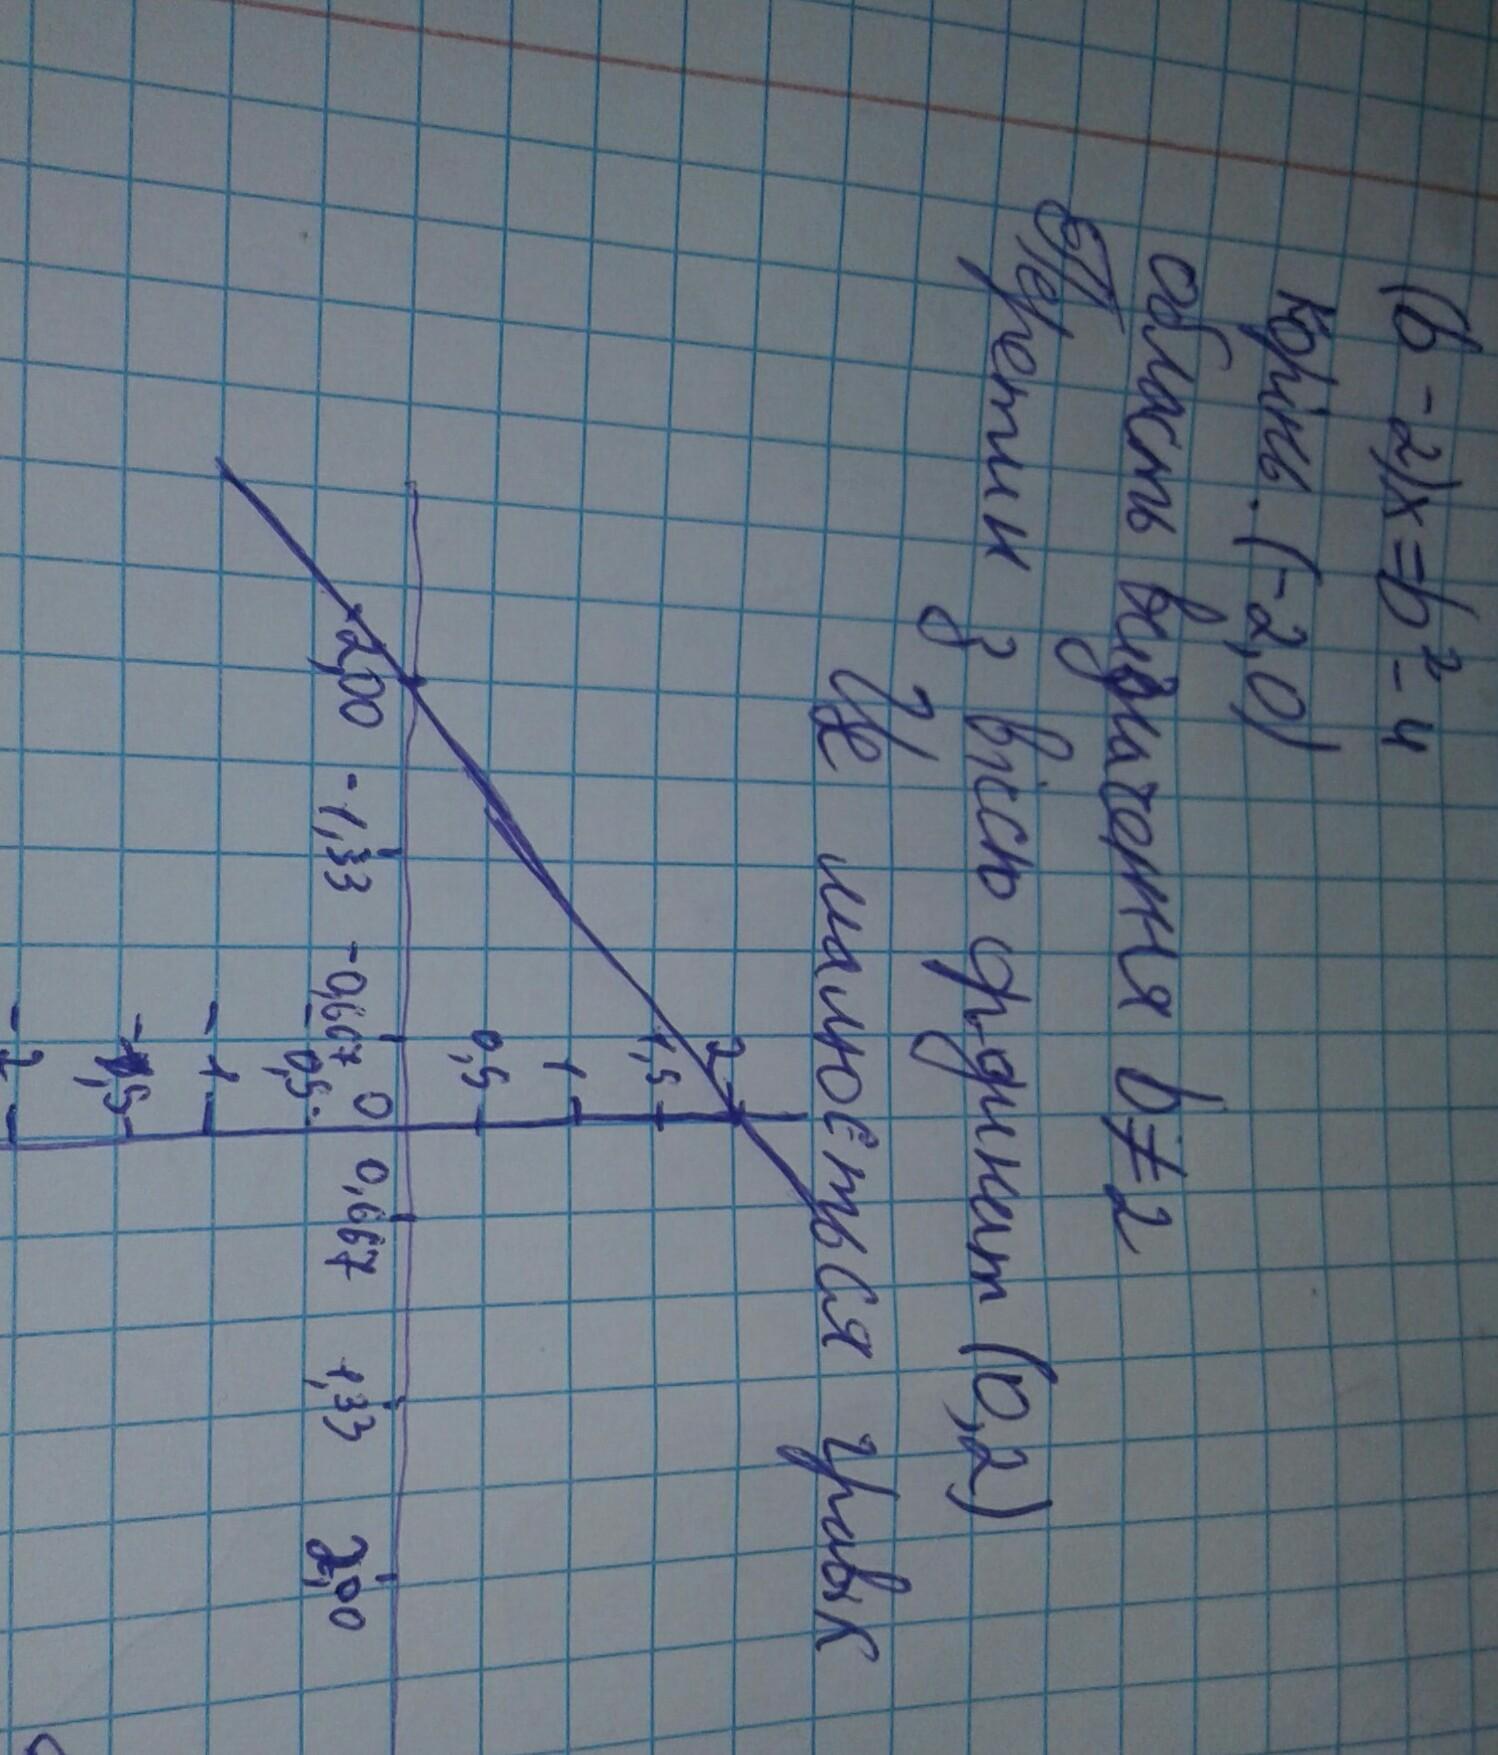 (b - 2)x = b² - 4
Корінь. (-2,0)
область визначення b ≠ 2
Перетин з вісю ординат (0,2)
Це малюється графік
2
1,5
1
0,5
-2,00 -1,33 -0,667 0 0,667 1,33 2,00
-0,5
-1
-1,5
-2